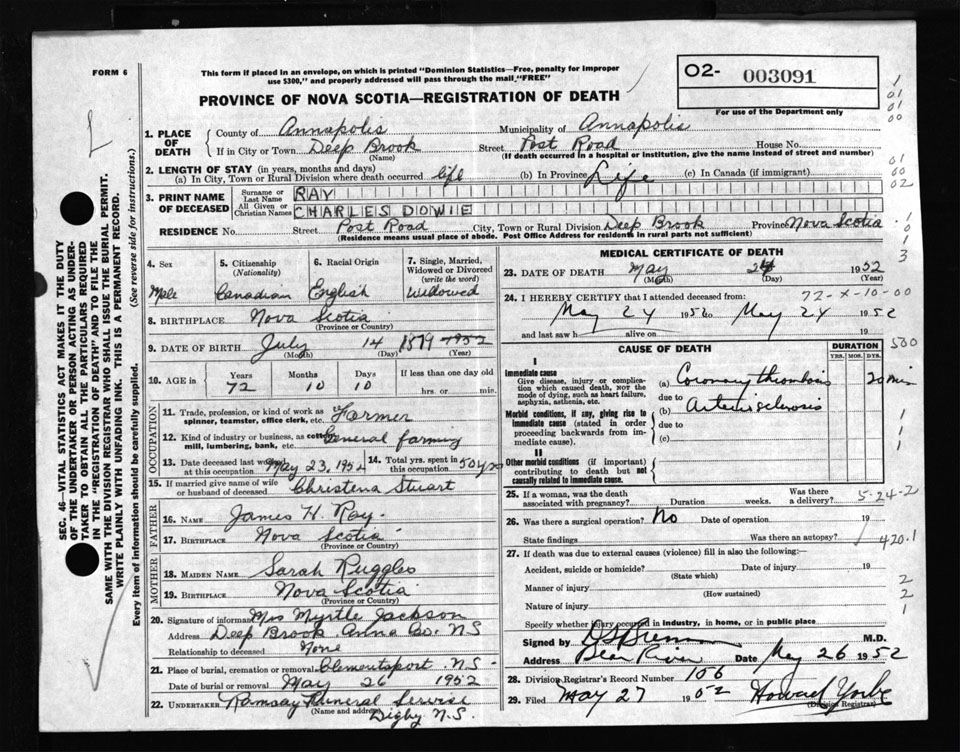 FORM 6
This form if placed in an envelope, on which is printed "Dominion Statistics—Free, penalty for improper
use $300," and properly addressed will pass through the mail "FREE"
O2- 003091
For use of the Department only
PROVINCE OF NOVA SCOTIA—REGISTRATION OF DEATH
1. PLACE OF DEATH
County of Annapolis Municipality of Annapolis
If in City or Town Deep Brook Street Post Road House No.
(Name) (If death occurred in a hospital or institution, give the name instead of street and number)
2. LENGTH OF STAY (in years, months and days)
(a) In City, Town or Rural Division where death occurred life (b) In Province Life (c) In Canada (if immigrant)
3. PRINT NAME OF DECEASED
Surname or Last Name RAY
All Given or Christian Names CHARLES DOWIE
RESIDENCE No. Street Post Road City, Town or Rural Division Deep Brook Province Nova Scotia
(Residence means usual place of abode. Post Office Address for residents in rural parts not sufficient)
4. Sex
Male
5. Citizenship
(Nationality)
Canadian
6. Racial Origin
English
7. Single, Married,
Widowed or Divorced
(write the word)
Widowed
8. BIRTHPLACE Nova Scotia
(Province or Country)
9. DATE OF BIRTH July 14 1879 1952
(Month) (Day) (Year)
10. AGE in Years Months Days If less than one day old
72 10 10 hrs. or min.
OCCUPATION
11. Trade, profession, or kind of work as
spinner, teamster, office clerk, etc. Farmer
12. Kind of industry or business, as cotton
mill, lumbering, bank, etc. General farming
13. Date deceased last worked
at this occupation May 23, 1952
14. Total yrs. spent in
this occupation 50 yrs
15. If married give name of wife
or husband of deceased Christena Stuart
FATHER
16. NAME James H. Ray
17. BIRTHPLACE Nova Scotia
(Province or Country)
MOTHER
18. MAIDEN NAME Sarah Ruggles
19. BIRTHPLACE Nova Scotia
(Province or Country)
20. Signature of informant Mrs Myrtle Jackson
Address Deep Brook Anna Co. N.S
Relationship to deceased None
21. Place of burial, cremation or removal Clementsport N.S.
Date of burial or removal May 26 1952
22. UNDERTAKER Ramsay Funeral Service
(Name and address) Digby N.S.
MEDICAL CERTIFICATE OF DEATH
23. DATE OF DEATH May 24 1952
(Month) (Day) (Year)
24. I HEREBY CERTIFY that I attended deceased from: 72-X-10-00
May 24 1952 to May 24 1952
and last saw h alive on 19
CAUSE OF DEATH
DURATION
YRS. MOS. DYS.
I
Immediate cause
Give disease, injury or complication
which caused death, NOT the
mode of dying, such as heart failure,
asphyxia, asthenia, etc.
(a) Coronary thrombosis 20 min
due to
Morbid conditions, if any, giving rise to
immediate cause (stated in order
proceeding backwards from immediate
cause).
(b) Arteriosclerosis
due to
(c)
II
Other morbid conditions (if important)
contributing to death but not
causally related to immediate cause.
25. If a woman, was the death
associated with pregnancy? Duration weeks. Was there
a delivery? 5-24-2
26. Was there a surgical operation? No Date of operation 19
State findings Was there an autopsy? 420.1
27. If death was due to external causes (violence) fill in also the following:—
Accident, suicide or homicide? Date of injury 19
(State which)
Manner of injury
(How sustained)
Nature of injury
Specify whether injury occurred in industry, in home, or in public place
Signed by M.D.
Address Bear River Date May 26 1952
28. Division Registrar's Record Number 156
29. Filed May 27 1952 Howard Yorke
(Division Registrar)
SEC. 46—VITAL STATISTICS ACT MAKES IT THE DUTY
OF THE UNDERTAKER OR PERSON ACTING AS UNDERTAKER
TO OBTAIN ALL THE PARTICULARS REQUIRED
IN THE "REGISTRATION OF DEATH" AND TO FILE THE
SAME WITH THE DIVISION REGISTRAR WHO SHALL ISSUE THE BURIAL PERMIT.
WRITE PLAINLY WITH UNFADING INK. THIS IS A PERMANENT RECORD.
Every item of information should be carefully supplied. (See reverse side for instructions.)
1
01
01
00
01
00
02
1
0
1
3
500
1
1
1
2
2
1